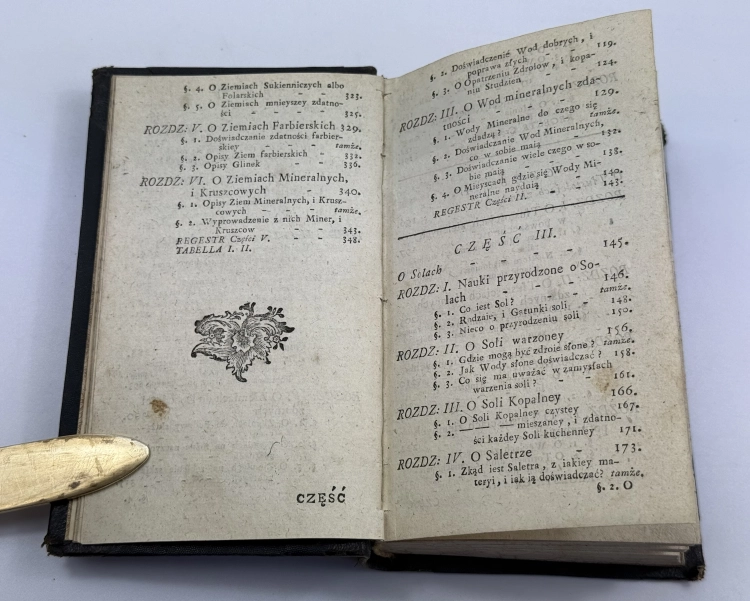 §. 4. O Ziemiach Sukienniczych albo
Folarskich - - 323.
§. 5. O Ziemiach mnieyszey zdatno-
ści - - - 325.
ROZDZ: V. O Ziemiach Farbierskich 329.
§. 1. Doświadczanie zdatności farbier-
skiey - - - tamże.
§. 2. Opisy Ziem farbierskich - 332.
§. 3. Opisy Glinek - - 336.
ROZDZ: VI. O Ziemiach Mineralnych,
i Kruszcowych - - 340.
§. 1. Opisy Ziem Mineralnych, i Krusz-
cowych - - - tamże.
§. 2. Wyprowadzenie z nich Miner, i
Kruszcow - - 343.
REGESTR Części V. - - 348.
TABELLA I. II.
CZĘŚĆ
§. 2. Doświadczenie Wod dobrych, i
poprawa złych - - 119.
§. 3. O Opatrzeniu Zdrojow, i kopa-
niu Studzien - - 124.
ROZDZ: III. O Wod mineralnych zda-
tności - - - 129.
§. 1. Wody Mineralne do czego się
zdadzą? - - tamże.
§. 2. Doświadczanie Wod Mineralnych,
co w sobie maią - 132.
§. 3. Doświadczanie wiele czego w so-
bie maią - - 138.
§. 4. O Mieyscach gdzie się Wody Mi-
neralne nayduią - - 140.
REGESTR Części II. - - 143.
CZĘŚĆ III.
O Solach - - - - 145.
ROZDZ: I. Nauki przyrodzone o So-
lach - - - - 146.
§. 1. Co iest Sol? - - tamże.
§. 2. Rodzaie, i Gatunki soli - 148.
§. 3. Nieco o przyrodzeniu soli 150.
ROZDZ: II. O Soli warzoney 156.
§. 1. Gdzie mogą być zdroie słone? tamże.
§. 2. Jak Wody słone doświadczać? 158.
§. 3. Co się ma uważać w zamysłach
warzenia soli? - - 161.
ROZDZ: III. O Soli Kopalney 166.
§. 1. O Soli Kopalney czystey 167.
§. 2. — — — mieszaney, i zdatno-
ści każdey Soli kuchenney 171.
ROZDZ: IV. O Saletrze - 173.
§. 1. Zkąd iest Saletra, z iakiey ma-
teryi, i iak ią doświadczać? tamże.
§. 2. O